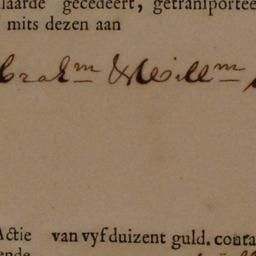 laarde gecedeert, getransportee
mits dezen aan
brah^m & Will^m
Actie van vyf duizent guld. conta
ende